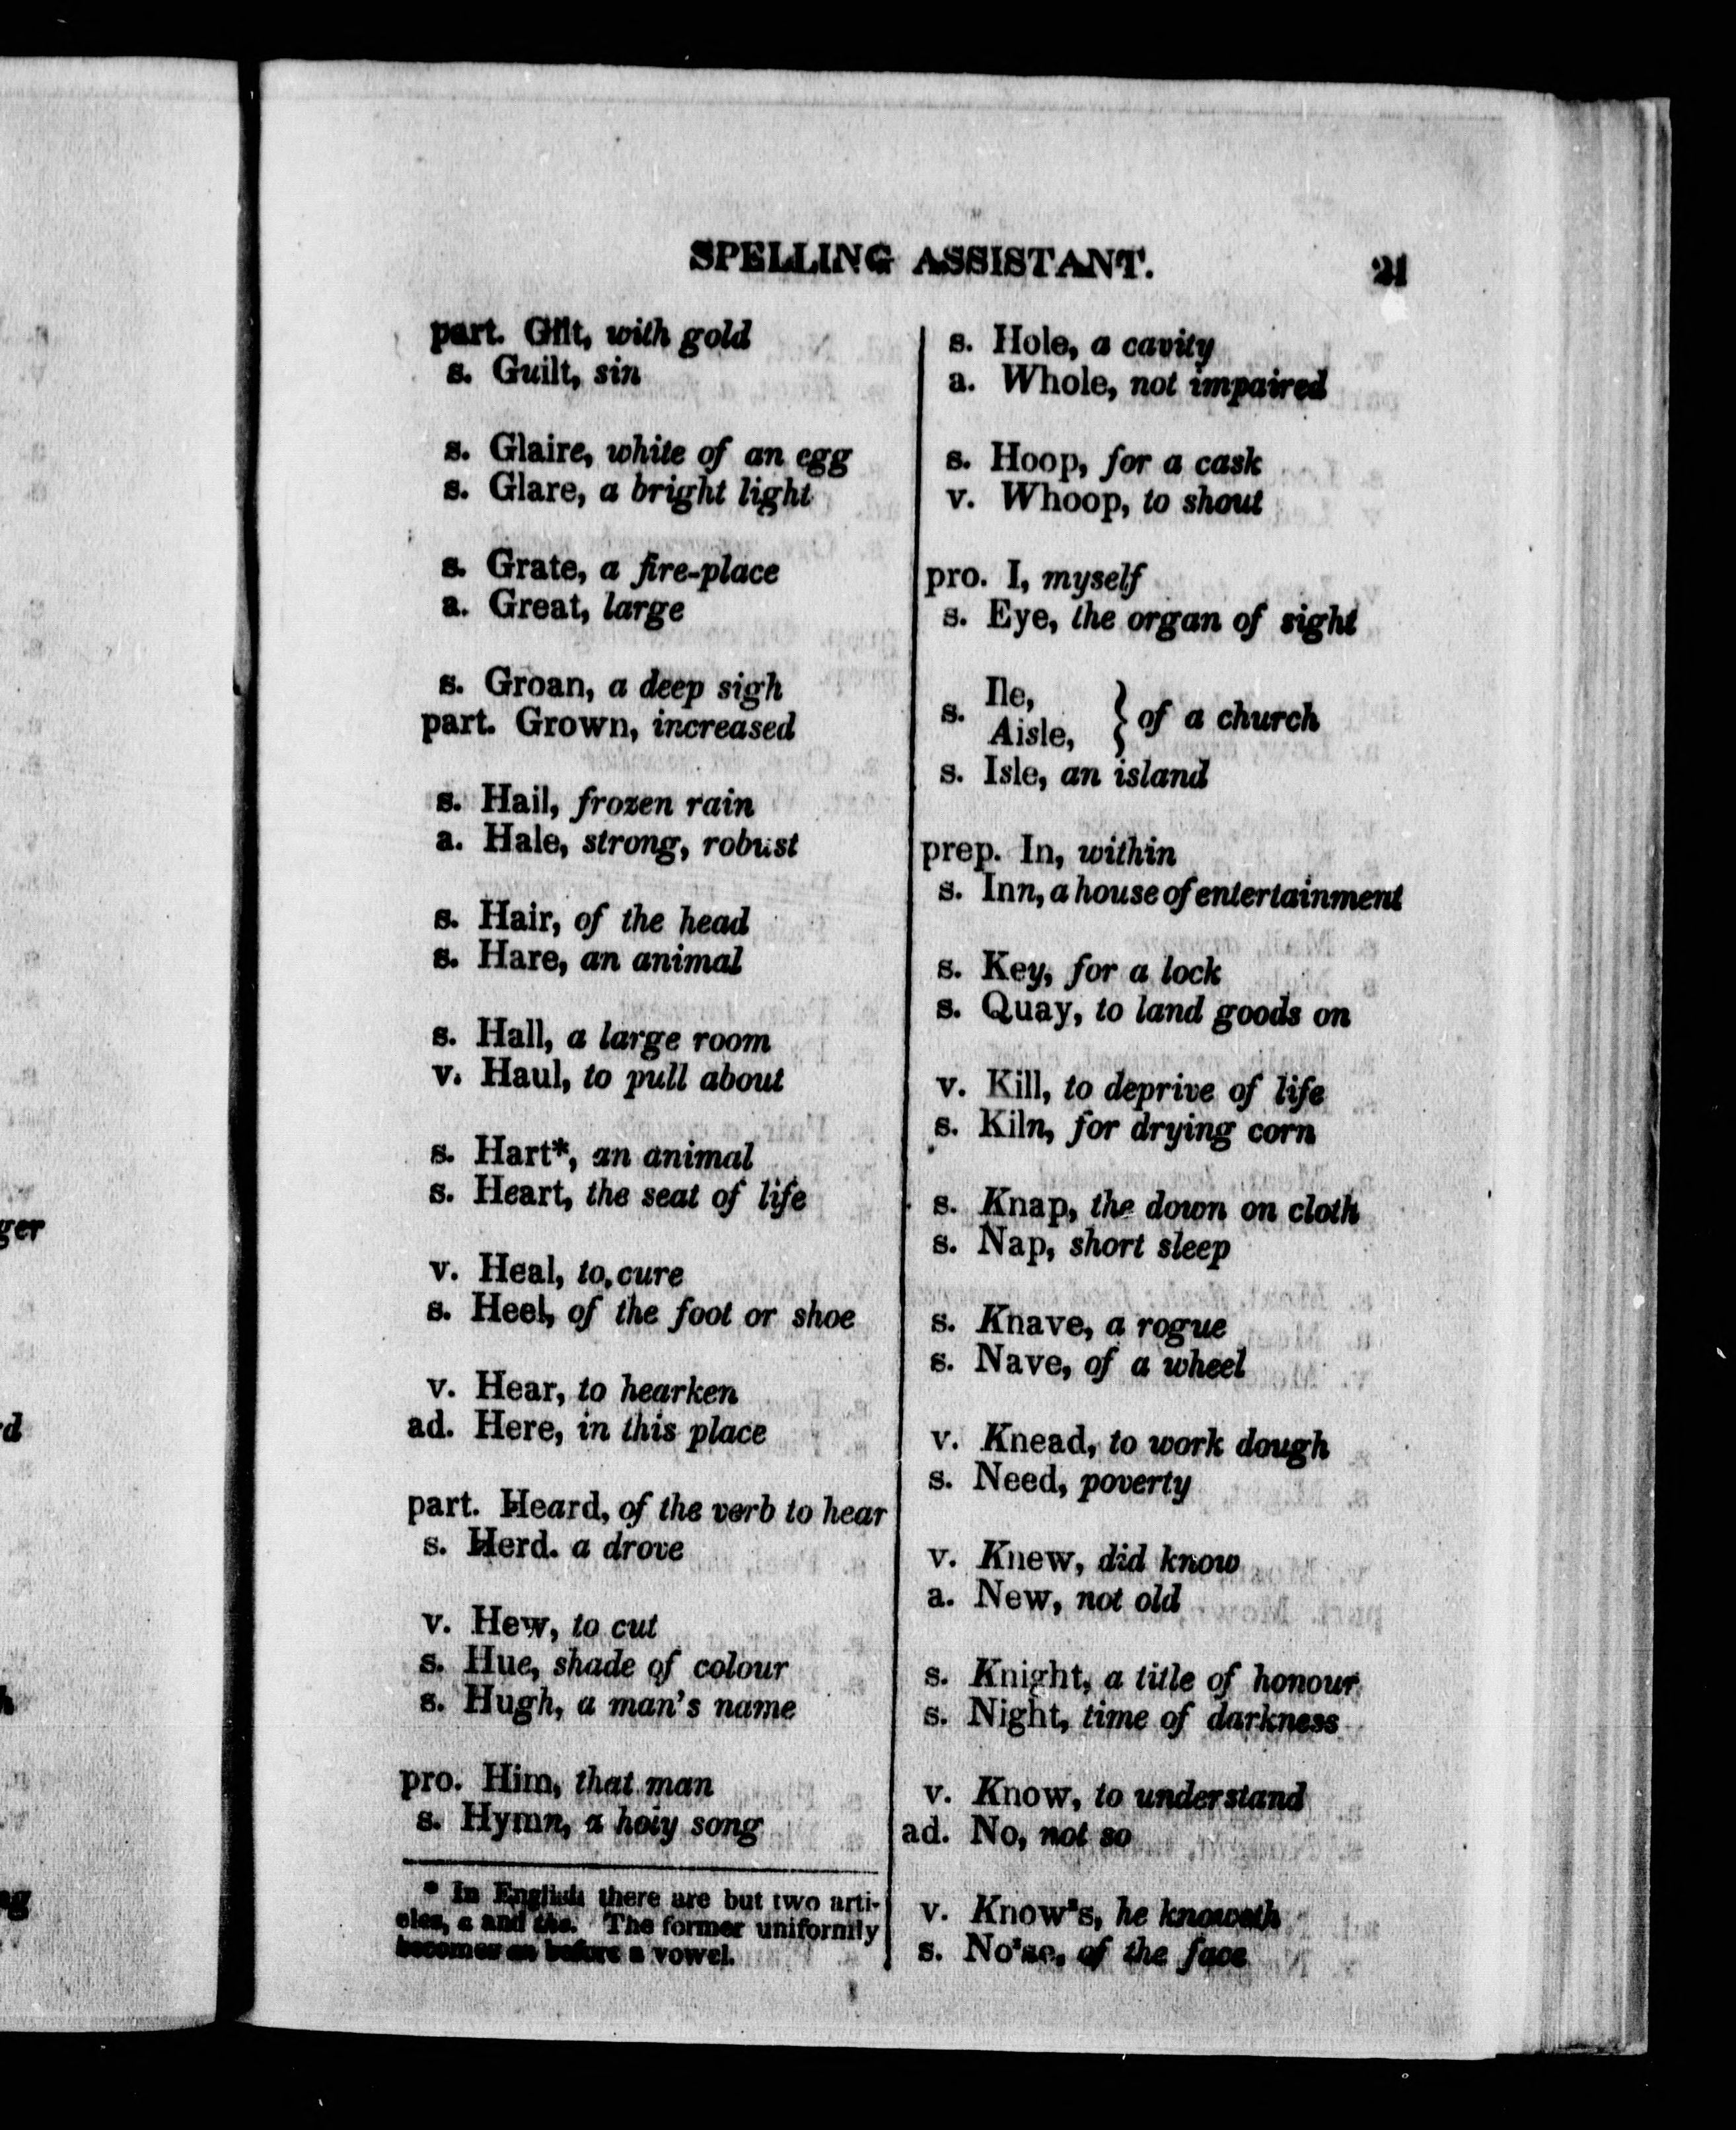 ger
d
SPELLING ASSISTANT.
21
part. Gilt, with gold
s. Guilt, sin
s. Glaire, white of an egg
s. Glare, a bright light
s. Grate, a fire-place
a. Great, large
s. Groan, a deep sigh
part. Grown, increased
s. Hail, frozen rain
a. Hale, strong, robust
s. Hair, of the head
s. Hare, an animal
s. Hall, a large room
v. Haul, to pull about
s. Hart*, an animal
s. Heart, the seat of life
v. Heal, to cure
s. Heel, of the foot or shoe
v. Hear, to hearken
ad. Here, in this place
part. Heard, of the verb to hear
s. Herd. a drove
v. Hew, to cut
s. Hue, shade of colour
s. Hugh, a man's name
pro. Him, that man
s. Hymn, a holy song
* In English there are but two arti-
cles, a and the. The former uniformly
becomes an before a vowel.
s. Hole, a cavity
a. Whole, not impaired
s. Hoop, for a cask
v. Whoop, to shout
pro. I, myself
s. Eye, the organ of sight
s. Ile,
Aisle, } of a church
s. Isle, an island
prep. In, within
s. Inn, a house of entertainment
s. Key, for a lock
s. Quay, to land goods on
v. Kill, to deprive of life
s. Kiln, for drying corn
s. Knap, the down on cloth
s. Nap, short sleep
s. Knave, a rogue
s. Nave, of a wheel
v. Knead, to work dough
s. Need, poverty
v. Knew, did know
a. New, not old
s. Knight, a title of honour
s. Night, time of darkness
v. Know, to understand
ad. No, not so
v. Know*s, he knoweth
s. No*se, of the face